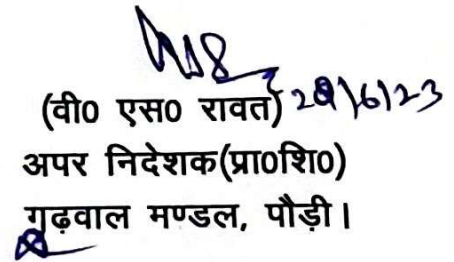 (वी0 एस0 रावत)
अपर निदेशक(प्रा0शि0)
गढ़वाल मण्डल, पौड़ी।